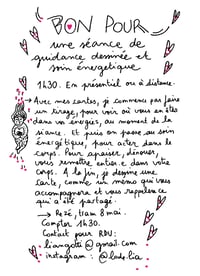 BON POUR
une séance de
guidance dessinée et
soin énergétique
1h30. En présentiel ou à distance.
Avec mes cartes, je commence par faire
un tirage, pour voir où vous en êtes
dans vos énergies, au moment de la
séance. Et puis on passe au soin
énergétique, pour agir dans le
corps. Pour apaiser, dénouer,
vous remettre entier.e dans votre
corps. A la fin, je dessine une
carte, comme un mémo qui vous
accompagnera et vous rappellera ce
qui a été partagé.
→ Rezé, tram 8 mai.
Compter 1h30.
Contact pour RDV:
@gmail.com
instagram :